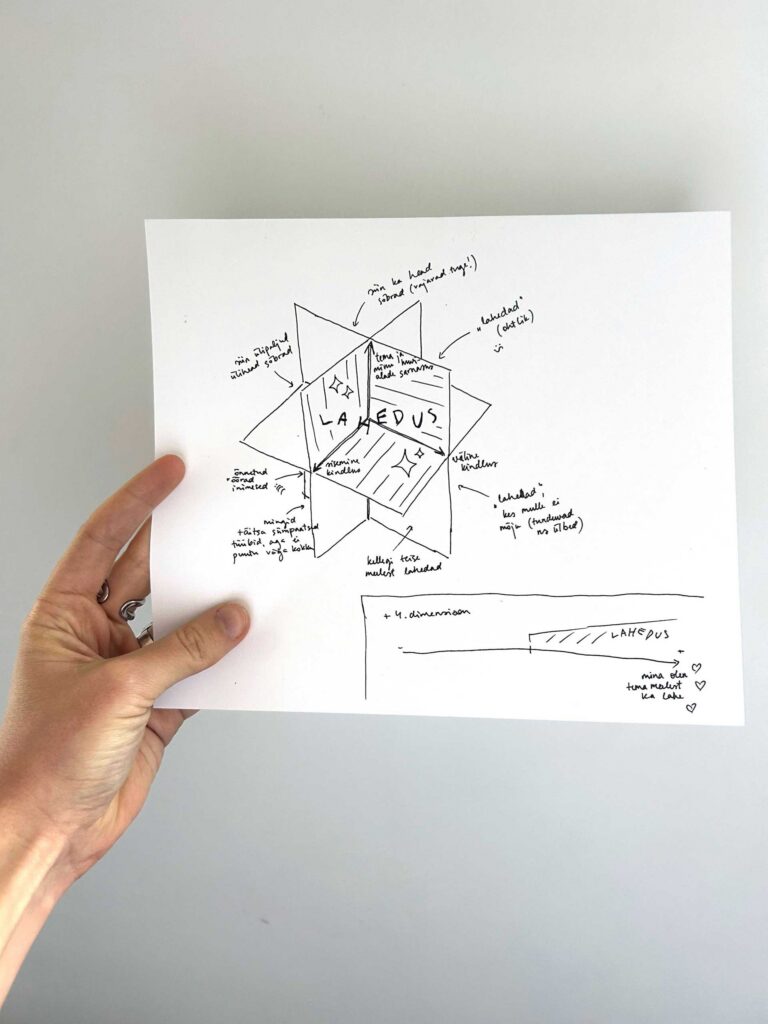 siin ka head
sõbrad (vajavad tuge!)
"lahedad"
(ohtlik)
siin ülipaljud
ülihead sõbrad
tema ja
minu huvi-
alade sarnasus
LAHEDUS
sisemine
kindlus
väline
kindlus
õnnetud
võõrad
inimesed
"lahedad",
kes mulle ei
mõju (tunduvad
ns ülbed)
mingid
täitsa sümpaatsed
tüübid, aga ei
puutu väga kokku
kellegi teise
meelest lahedad
+ 4. dimensioon
LAHEDUS
- +
mina olen
tema meelest
ka lahe